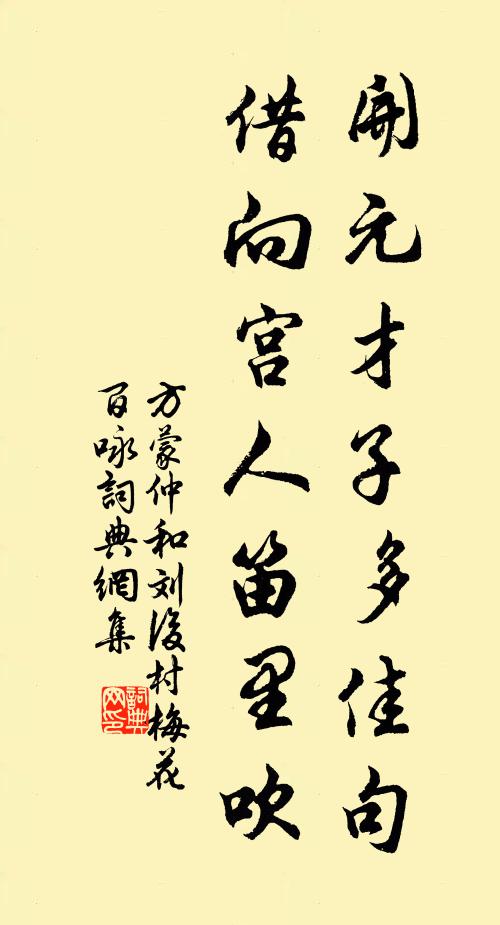 開元才子多佳句
借向宮人笛里吹
方蒙仲和刘後村梅花
百咏詞典網集
詞典网印